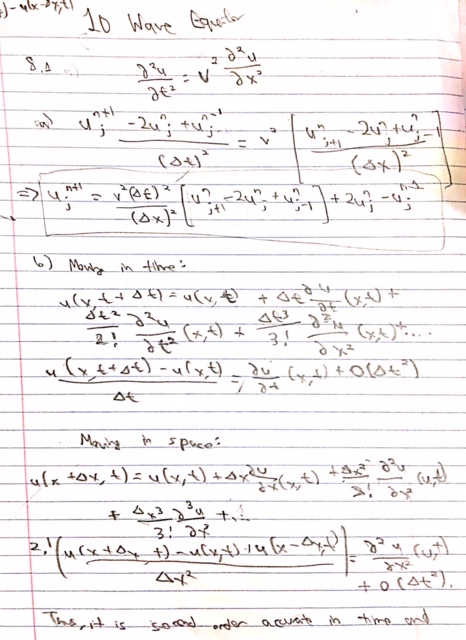 ) - u(x-Δx,t)
1D Wave Equation
8.1 ∂²u/∂t² = v² ∂²u/∂x²
a) (u_j^{n+1} - 2u_j^n + u_j^{n-1})/(Δt)² = v² [(u_{j+1}^n - 2u_j^n + u_{j-1}^n)/(Δx)²]
=> u_j^{n+1} = v²(Δt)²/(Δx)² [u_{j+1}^n - 2u_j^n + u_{j-1}^n] + 2u_j^n - u_j^{n-1}
b) Moving in time:
u(x,t+Δt) = u(x,t) + Δt ∂u/∂t (x,t) +
Δt²/2! ∂²u/∂t² (x,t) + Δt³/3! ∂³u/∂x² (x,t) + ...
(u(x,t+Δt) - u(x,t))/Δt = ∂u/∂t (x,t) + O(Δt²)
Moving in space:
u(x+Δx,t) = u(x,t) + Δx ∂u/∂x (x,t) + Δx²/2! ∂²u/∂x² (x,t)
+ Δx³/3! ∂³u/∂x³ + ...
2! (u(x+Δx,t) - u(x,t) + u(x-Δx,t))/Δx² = ∂²u/∂x² (x,t)
+ O(Δt²).
Thus, it is second order accurate in time and